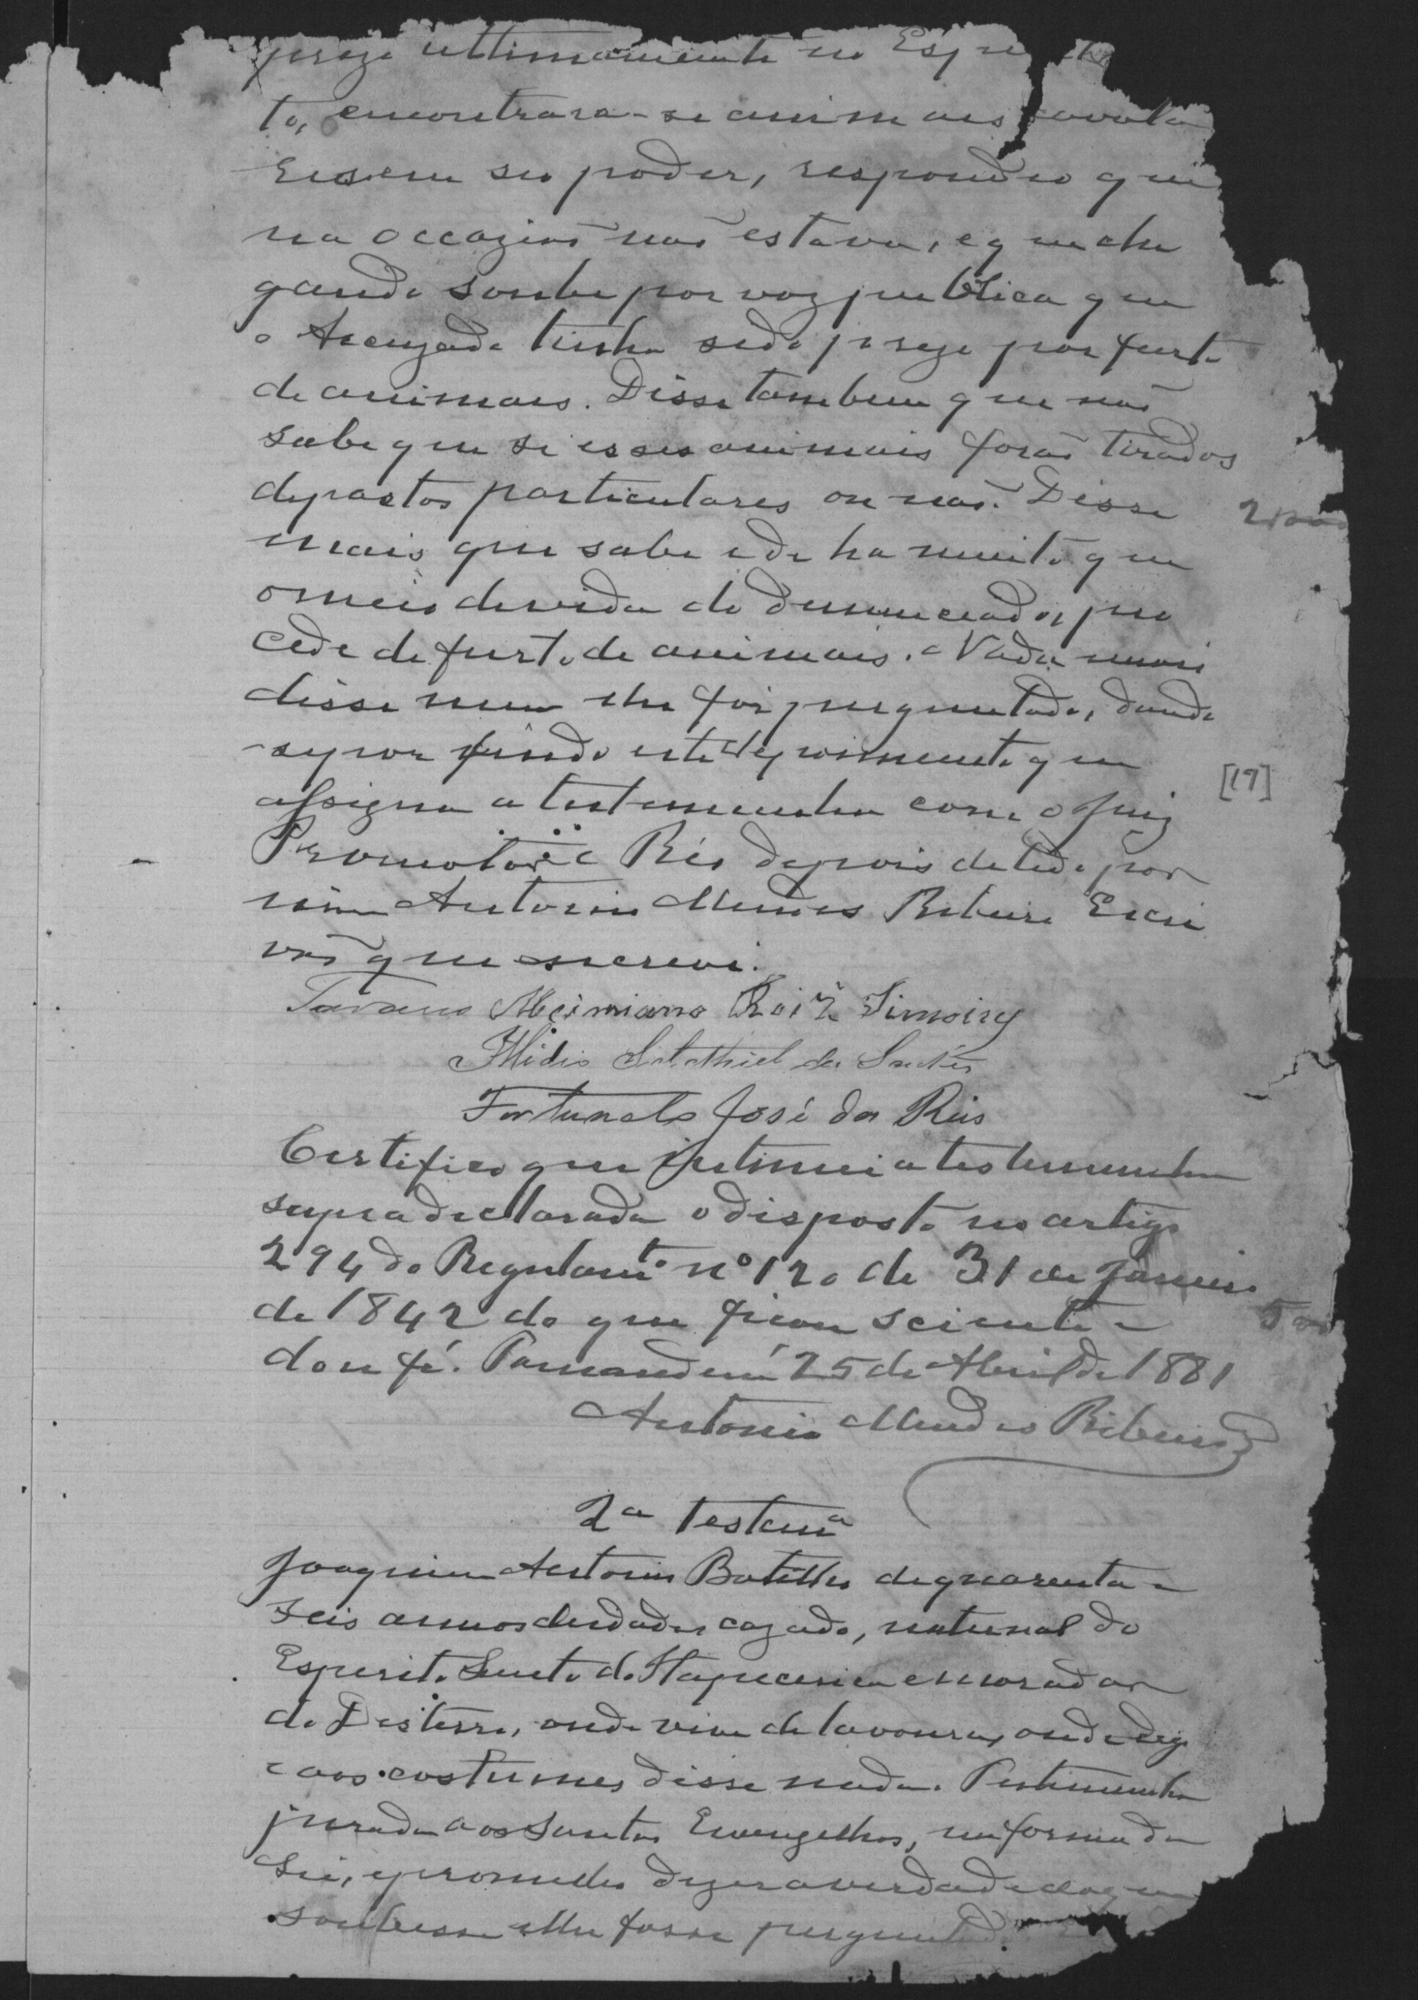 prezo ultimamente no Esp
to, encontrara-se animais cavala
res em seo poder, respondeo que
na occazião não estava, e que che
gando soube por voz publica que
o Acuzado tinha sido prezo por furto
de animais. Disse tambem que não
sabe que se esses animais forão tirados
de pastos particulares ou não. Disse
mais que sabe e de ha muito que
o meio de vida do denunciado, pro
cede de furto de animais. Nada mais
disse nem lhe foi perguntado, dando
se por findo este depoimento que
assigna a testemunha com o Juiz
Promotor e Réo depois de lido por
mim Antonio Mendes Ribeiro Escri
vão que escrevi.
Roiz
Salathiel dos Santos
Fortunato José dos Reis
Certifico que intimei a testemunha
supra declarada o disposto no artigo
294 do Regulamto nº 120 de 31 de Janeiro
de 1842 do que ficou sciente e
dou fé. 25 de Abril de 1881
Antonio Mendes Ribeiro
2a Testema
Joaquim Antonio Botelho de quarenta e
seis annos de idade, cazado, natural do
Espirito Santo de Itapecerica e morador
do Desterro, onde vive de lavoura,
e aos costumes disse nada. Testimunha
jurada aos Santos Evangelhos, na forma da
Lei, e prometteo dizer a verdade do que
soubesse e lhe fosse perguntado.
[17]